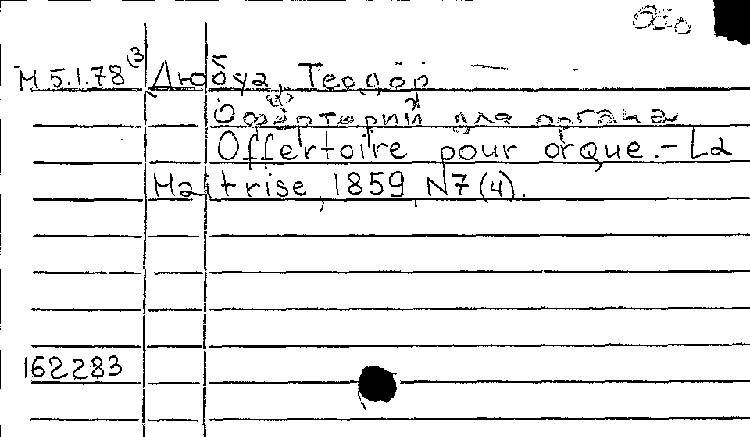 М 5.1.78 (3 Дюбуа, Теодор
Офферторий для органа
Offertoire pour orgue. - La
Maîtrise, 1859, N7 (4).
162283